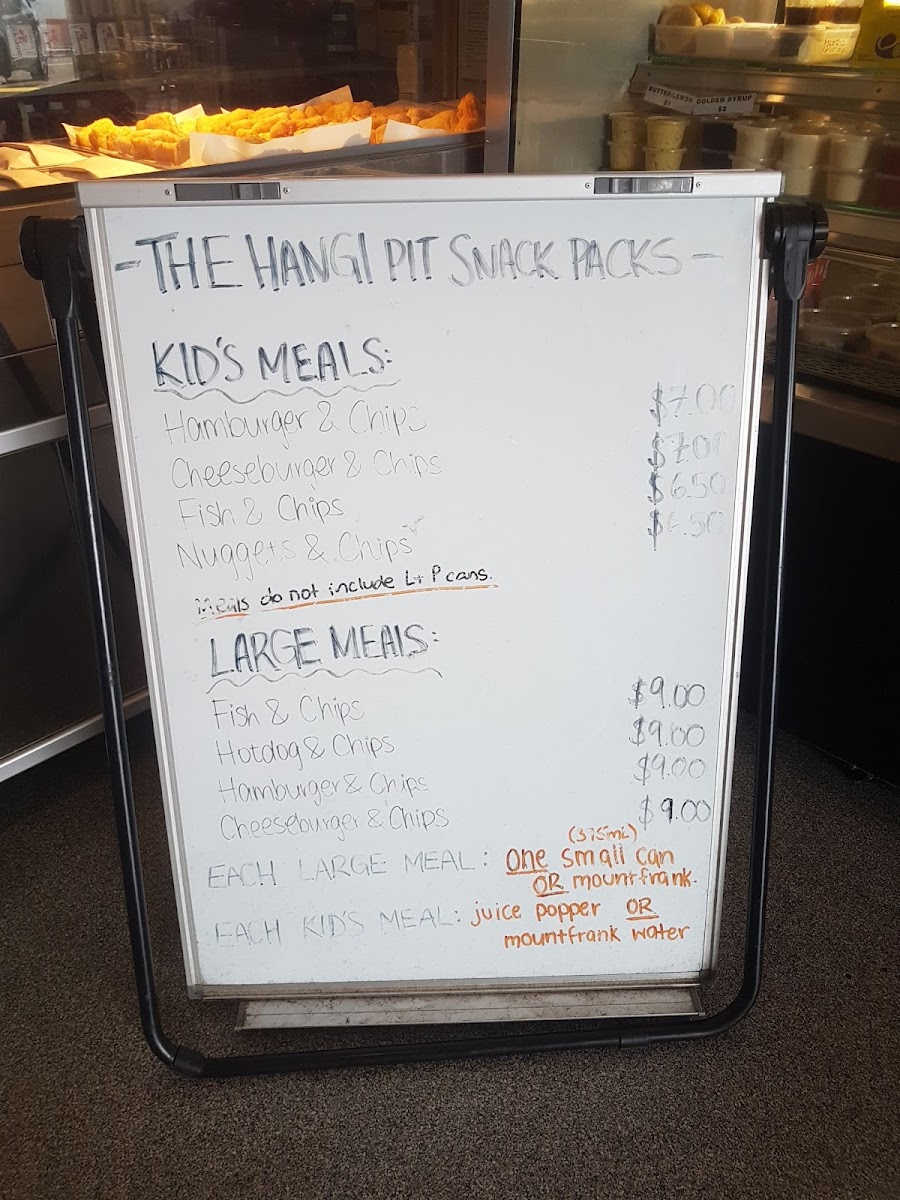 BUTTER/LEMON
$1
GOLDEN SYRUP
$2
-THE HANGI PIT SNACK PACKS-
KID'S MEALS:
Hamburger & Chips $7.00
Cheeseburger & Chips $7.00
Fish & Chips $6.50
Nuggets & Chips $6.50
Meals do not include L+P cans.
LARGE MEALS:
Fish & Chips $9.00
Hotdog & Chips $9.00
Hamburger & Chips $9.00
Cheeseburger & Chips $9.00
(375mL)
EACH LARGE MEAL: One small can
OR mountfrank.
EACH KID'S MEAL: juice popper OR
mountfrank water